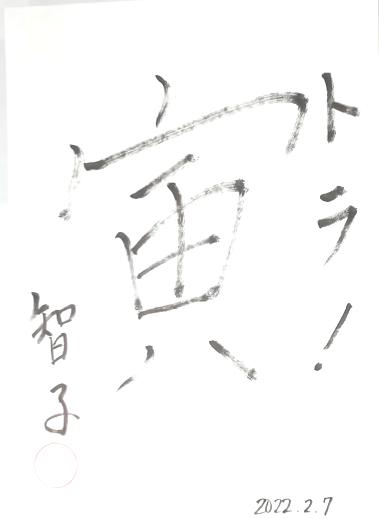 トラ!
寅
智子
2022.2.7